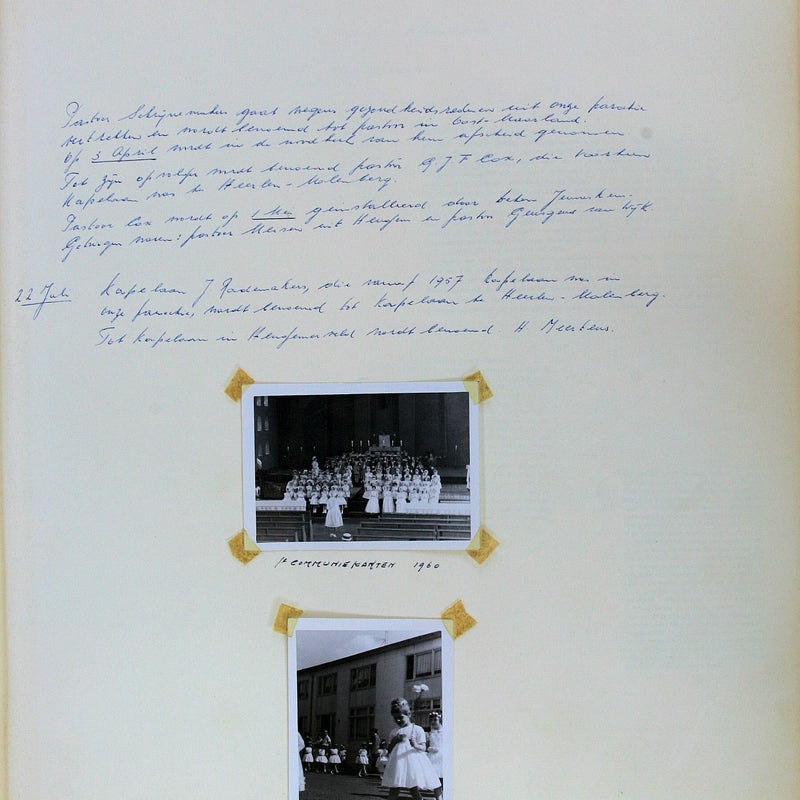 Pastoor Schijnemakers gaat wegens gezondheidsredenen uit onze parochie
vertrekken en wordt benoemd tot pastoor in Oost-Maarland.
Op 3 April wordt in de noodkerk van hem afscheid genomen.
Tot zijn opvolger wordt benoemd pastoor G.J.F. Cox, die voorheen
Kapelaan was te Heerlen-Molenberg.
Pastoor Cox wordt op 1 Mei geinstalleerd door deken Jenneskens.
Getuigen waren: pastoor Meisen uit en pastoor van Wijk.
22 Juli Kapelaan J Rademakers, die vanaf 1957 Kapelaan was in
onze parochie, wordt benoemd tot Kapelaan te Heerlen-Molenberg.
Tot Kapelaan in wordt benoemd H Meertens.
1e COMMUNIEKANTEN 1960